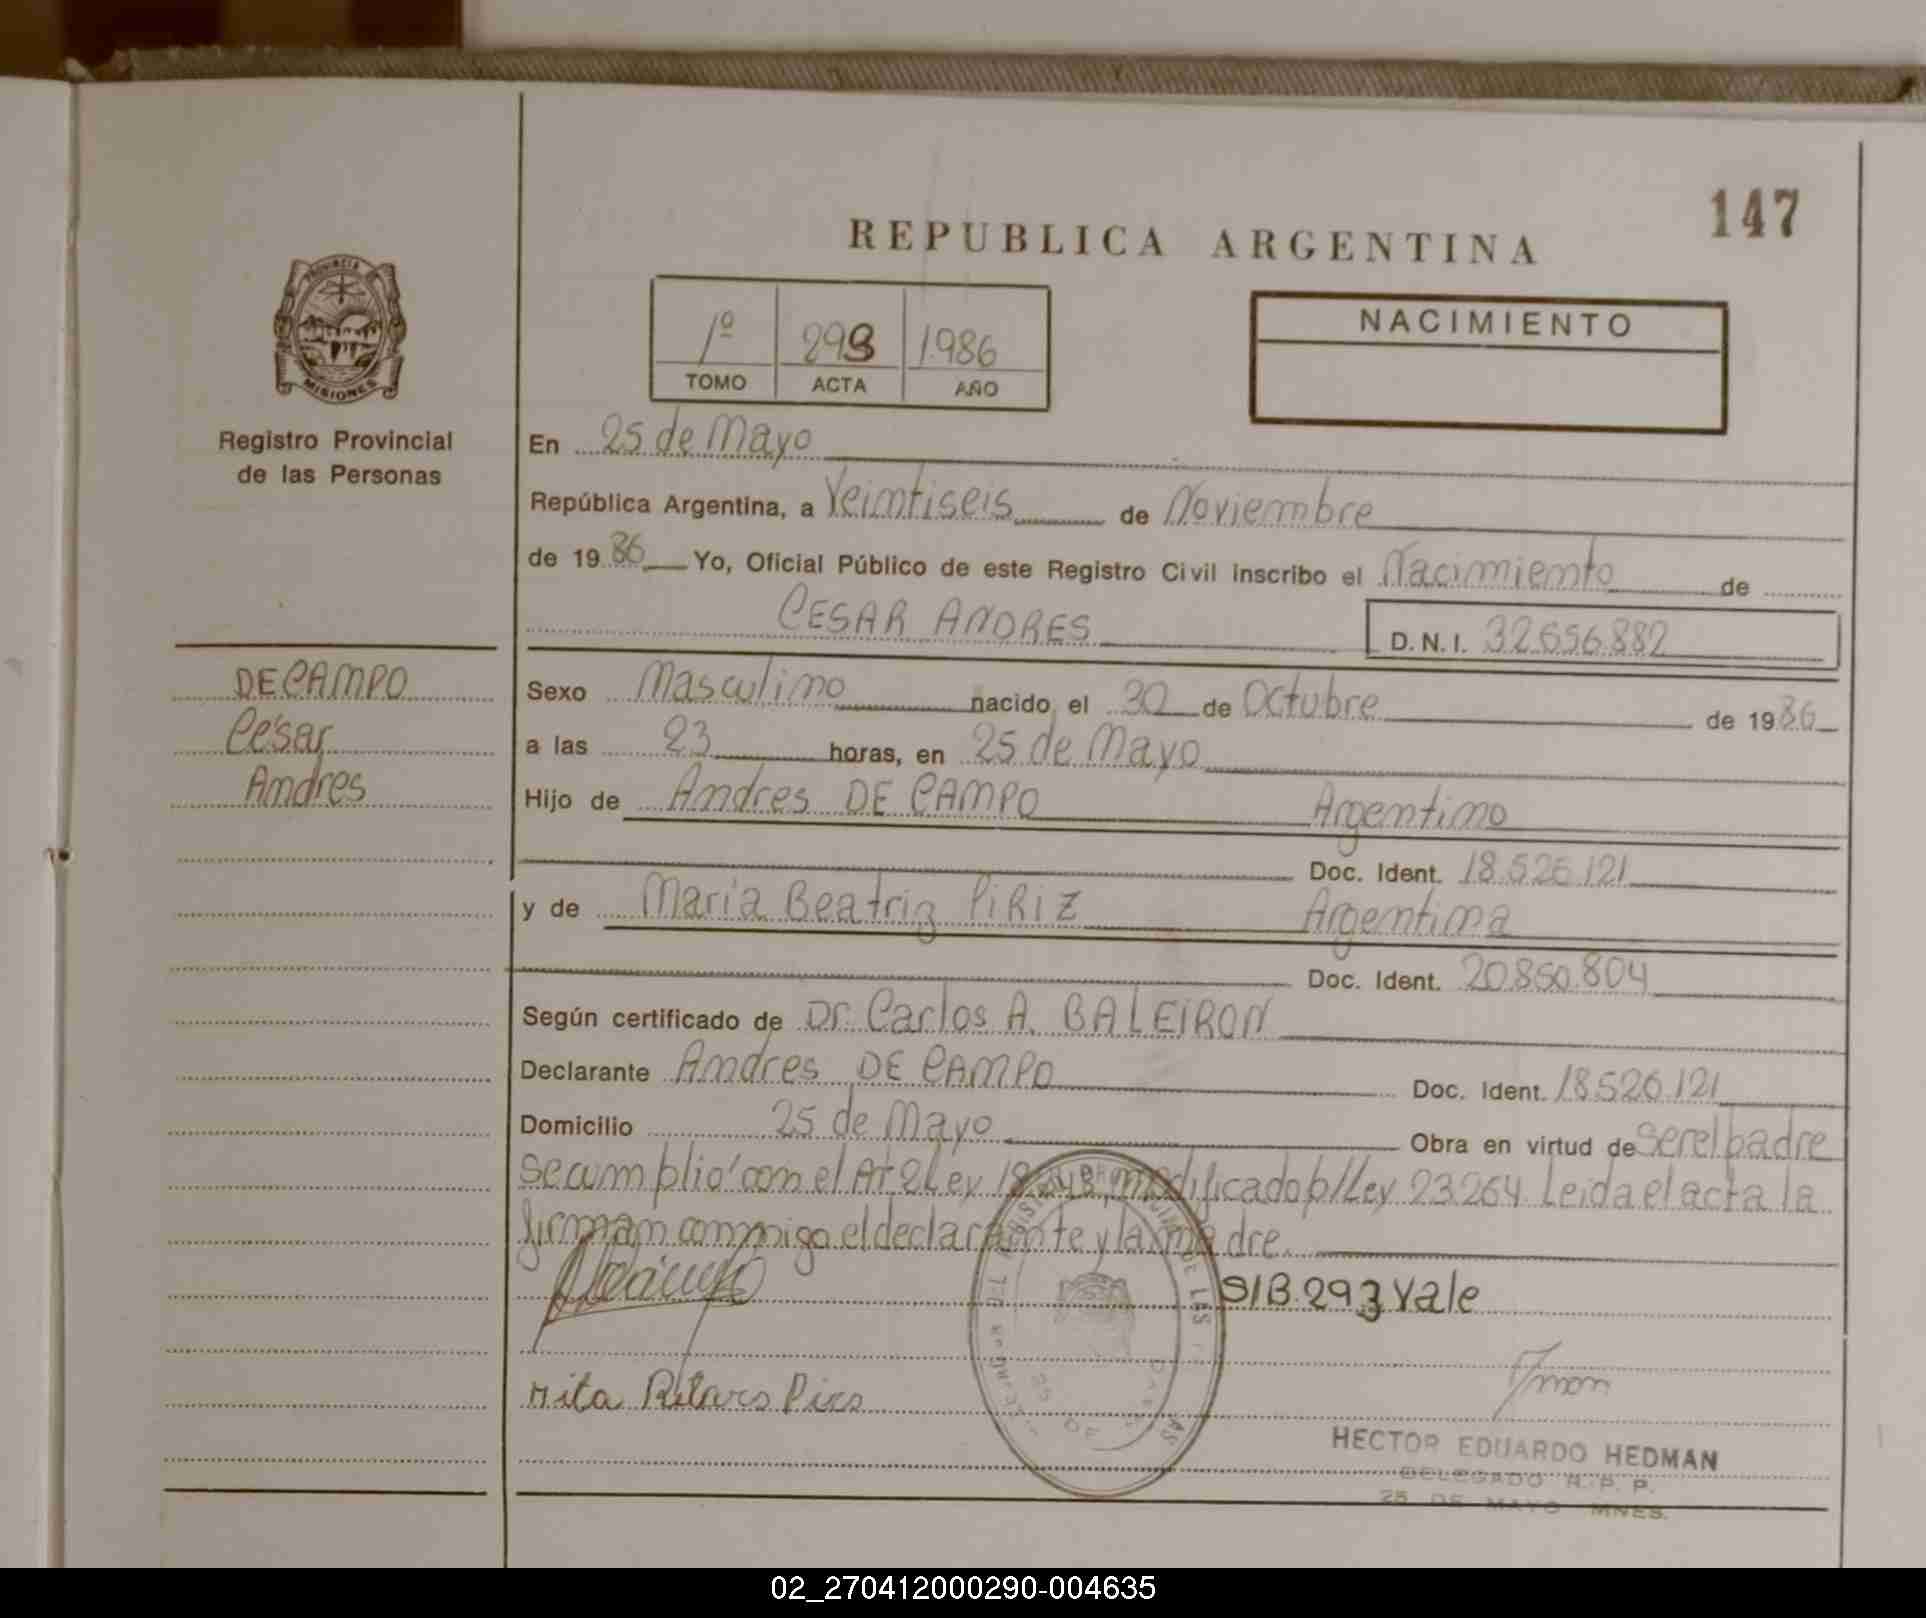 147
REPUBLICA ARGENTINA
PROVINCIA DE
MISIONES
Registro Provincial
de las Personas
1º 293 1986
TOMO ACTA AÑO
NACIMIENTO
En 25 de Mayo
República Argentina, a Veintiseis de Noviembre
de 1986 Yo, Oficial Público de este Registro Civil inscribo el Nacimiento de
CESAR ANDRES D.N.I. 32.656.882
DE CAMPO
César
Andres
Sexo Masculino nacido el 30 de Octubre de 1986
a las 23 horas, en 25 de Mayo
Hijo de Andres DE CAMPO Argentino
Doc. Ident. 18.526.121
y de Maria Beatriz PIRIZ Argentina
Doc. Ident. 20.850.804
Según certificado de Dr. Carlos A. BALEIRON
Declarante Andres DE CAMPO Doc. Ident. 18.526.121
Domicilio 25 de Mayo Obra en virtud de ser el padre
se cumplió con el Art 2 Ley modificado p/Ley 23.264. Leida el acta la
firman conmigo el declarante y la madre.
S/B.293 Vale
HECTOR EDUARDO HEDMAN
DELEGADO R. P. P.
25 DE MAYO MNES.
02_270412000290-004635